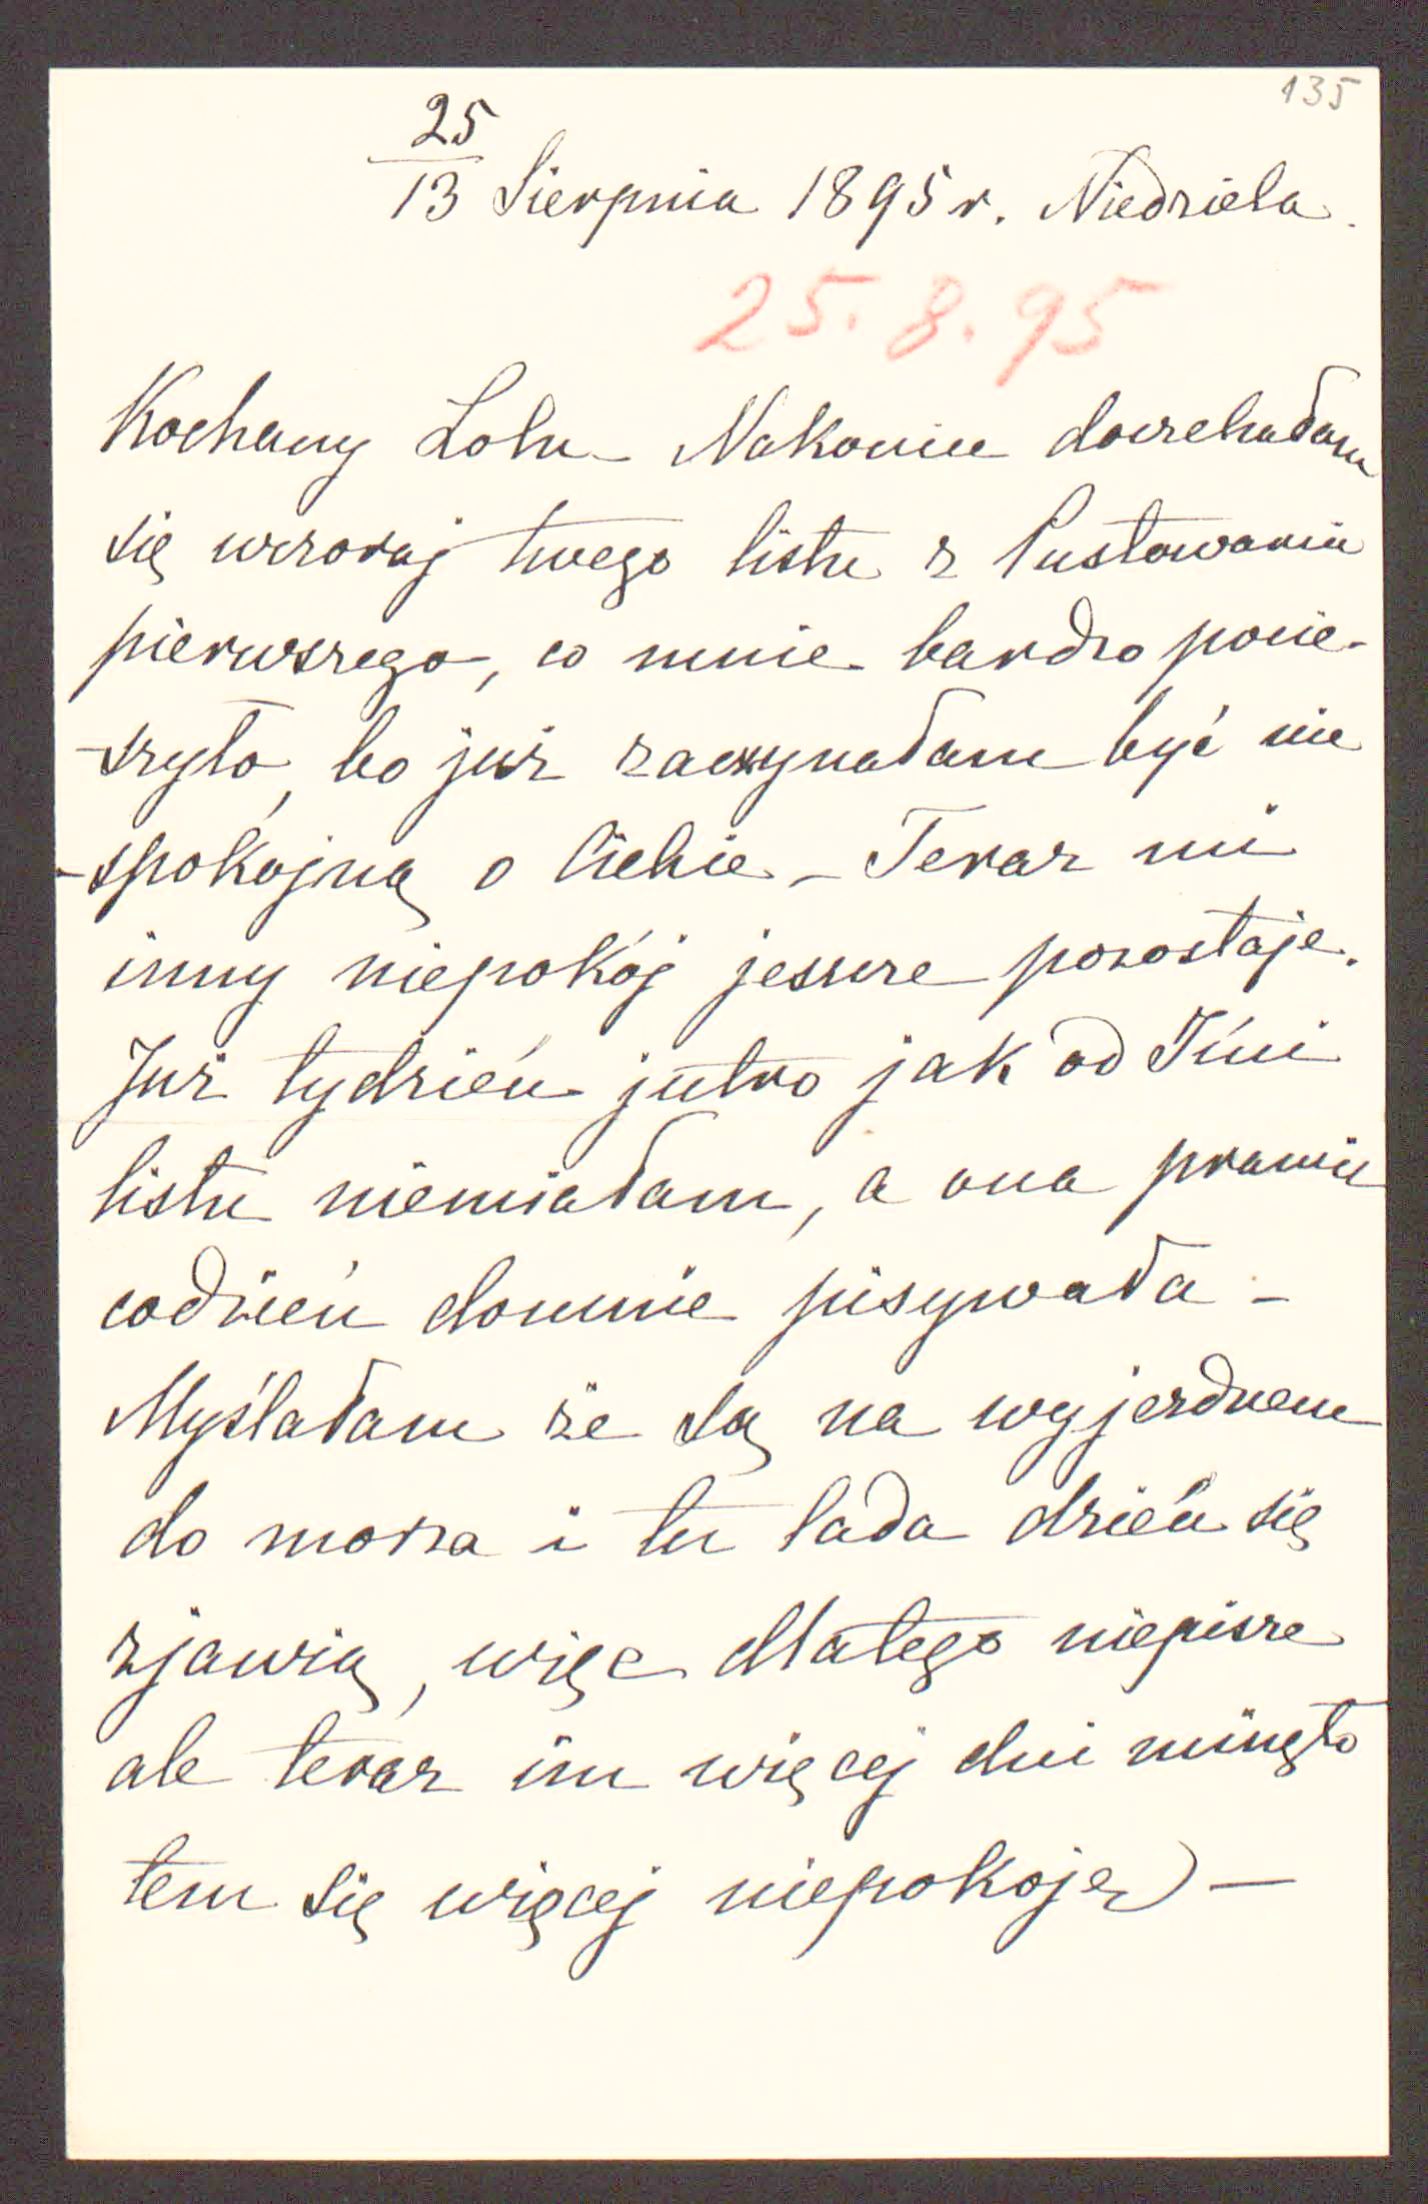 135
25
13 Sierpnia 1895 r. Niedziela.
25. 8. 95
Kochany Lolu – Nakoniec doczekałam
się wczoraj twego listu z Pustowarni
pierwszego, co mnie bardzo pocie-
-szyło, bo już zaczynałam być nie
-spokojną o Ciebie – Teraz mi
inny niepokój jeszcze pozostaje.
Już tydzień jutro jak od Tini
listu niemiałam, a ona prawie
codzień domnie pisywała –
Myślałam że są na wyjezdnem
do morza i tu lada dzień się
zjawią, więc dlatego niepisze
ale teraz im więcej dni minęło
tem się więcej niepokoję –